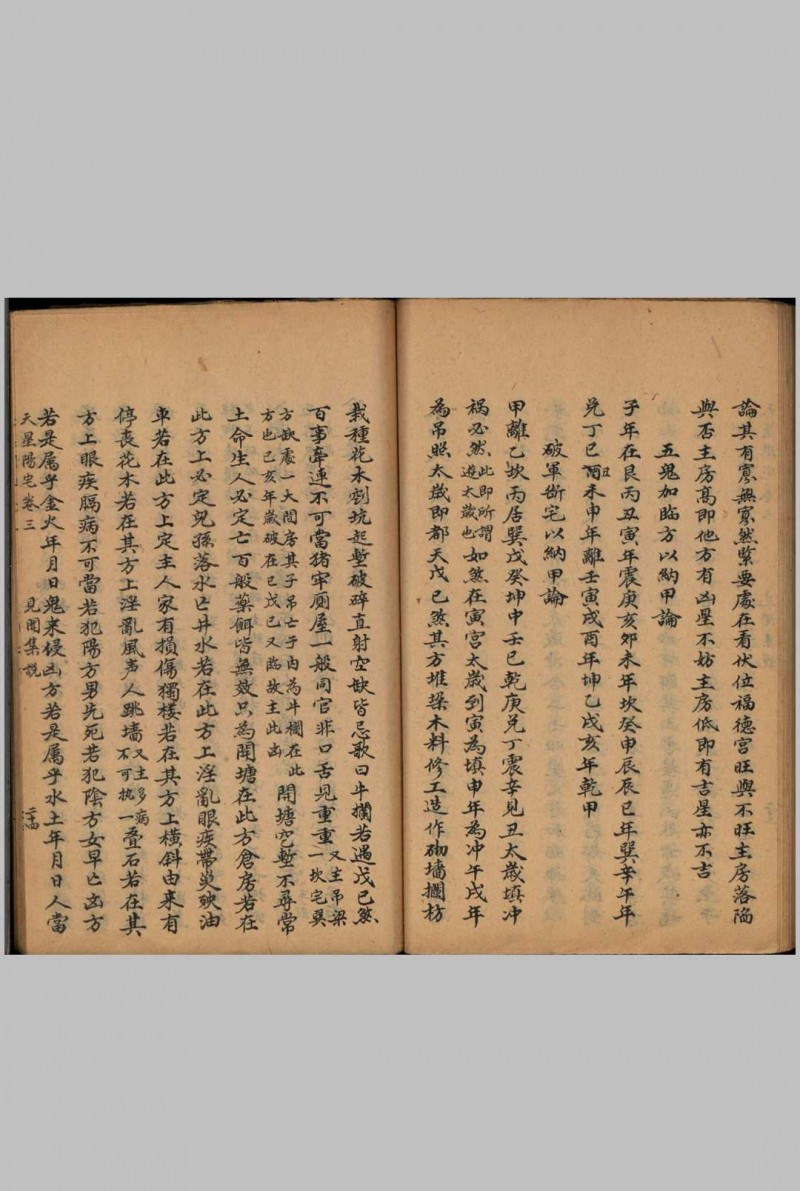 論其有寡無寡然緊要處在看伏位福德宮旺與不旺主房落陷
與否主房高即他方有凶星不妨主房低即有吉星亦不吉
五鬼加臨方以納甲論
子年在艮丙丑寅年震庚亥卯未年坎癸申辰辰巳年巽辛午年
兌丁巳丑未申年離壬寅戌酉年坤乙戌亥年乾甲
破軍断宅以納甲論
甲離乙坎丙居巽戊癸坤申壬巳乾庚兌丁震辛見丑太歲填冲
禍必然此即所謂遊太歲也如煞在寅宮太歲到寅為填申年為冲午戌年
為吊照太歲即都天戊己煞其方堆梁木料修工造作砌墻攔枋
栽種花木割坑起塹破碎直射空缺皆忌歌曰牛攔若遇戊己煞
百事牽連不可當猪牢厠屋一般同官非口舌見重重又主吊梁一坎宅巽
方缺處一大間房其子吊亡于內為斗欄在此方也己亥年歲破在巳戊己又臨故主此凶開塘穵塹不尋常
土命生人必定亡百般藥餌皆無效只為開塘在此方倉房若在
此方上必定兒孫落水亡井水若在此方上淫亂眼疾帶災殃油
車若在此方上定主人家有損傷獨楼若在其方上橫斜由来有
停丧花木若在其方上淫亂風声人跳墻又主多病不可执一叠石若在其
方上眼疾膈病不可當若犯陽方男先死若犯陰方女早亡凶方
若是属乎金火年月日鬼来侵凶方若是属乎水土年月日人當
天星陽宅卷三 見聞集説